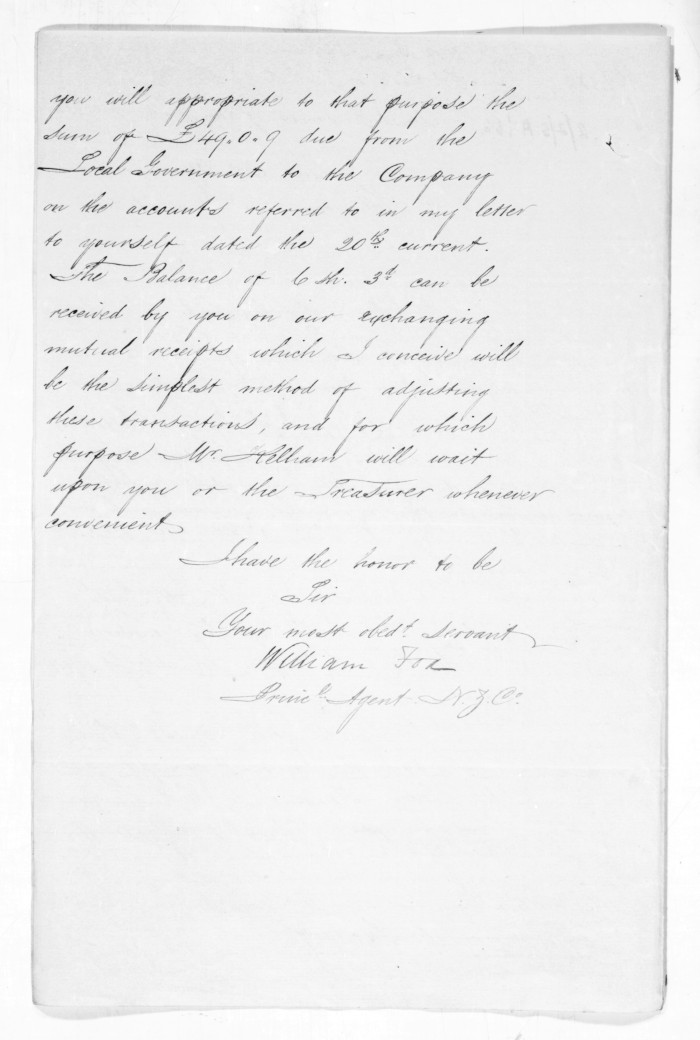 you will appropriate to that purpose the
sum of £49.0.9 due from the
Local Government to the Company
on the accounts referred to in my letter
to yourself dated the 20th current.
The Balance of 6 sh. 3d can be
received by you on our exchanging
mutual receipts which I conceive will
be the simplest method of adjusting
these transactions, and for which
purpose Mr. Kelham will wait
upon you or the Treasurer whenever
convenient
I have the honor to be
Sir
Your most obedt servant
William Fox
Princl Agent N.Z. Co.